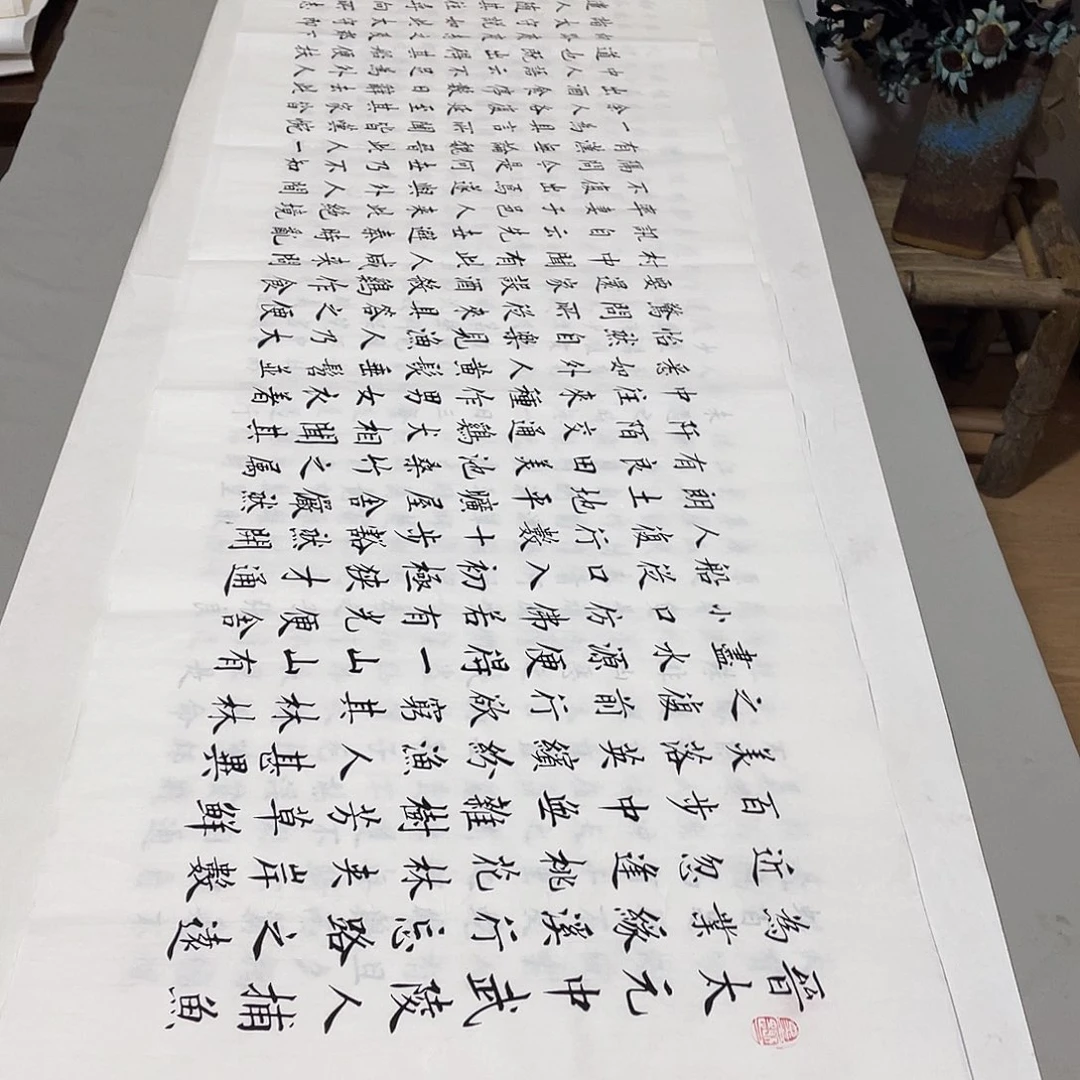 晉太元中武陵人捕魚
為業緣溪行忘路之遠
近忽逢桃花林夾岸數
百步中無雜樹芳草鮮
美落英繽紛漁人甚異
之復前行欲窮其林林
盡水源便得一山山有
小口仿佛若有光便舍
船從口入初極狹才通
人復行數十步豁然開
朗土地平曠屋舍儼然
有良田美池桑竹之屬
阡陌交通鷄犬相聞其
中往來種作男女衣著
悉如外人黃髮垂髫並
怡然自樂見漁人乃大
驚問所從來具答之便
要還家設酒殺鷄作食
村中聞有此人咸來問
訊自云先世避秦時亂
率妻子邑人來此絕境
不復出焉遂與外人間
隔問今是何世乃不知
有漢無論魏晉此人一
一為具言所聞皆惋